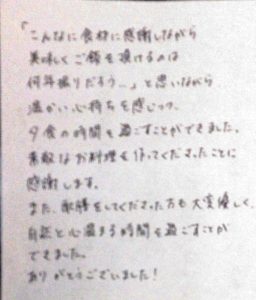 「こんなに食材に感謝しながら
美味しくご飯を頂けるのは
何年振りだろう…」と思いながら
温かい心持ちを感じつつ
夕食の時間を過ごすことができました。
素敵なお料理を作ってくださったことに
感謝します。
また、配膳をしてくださった方も大変優しく、
自然と心温まる時間を過ごすことが
できました。
ありがとうございました!